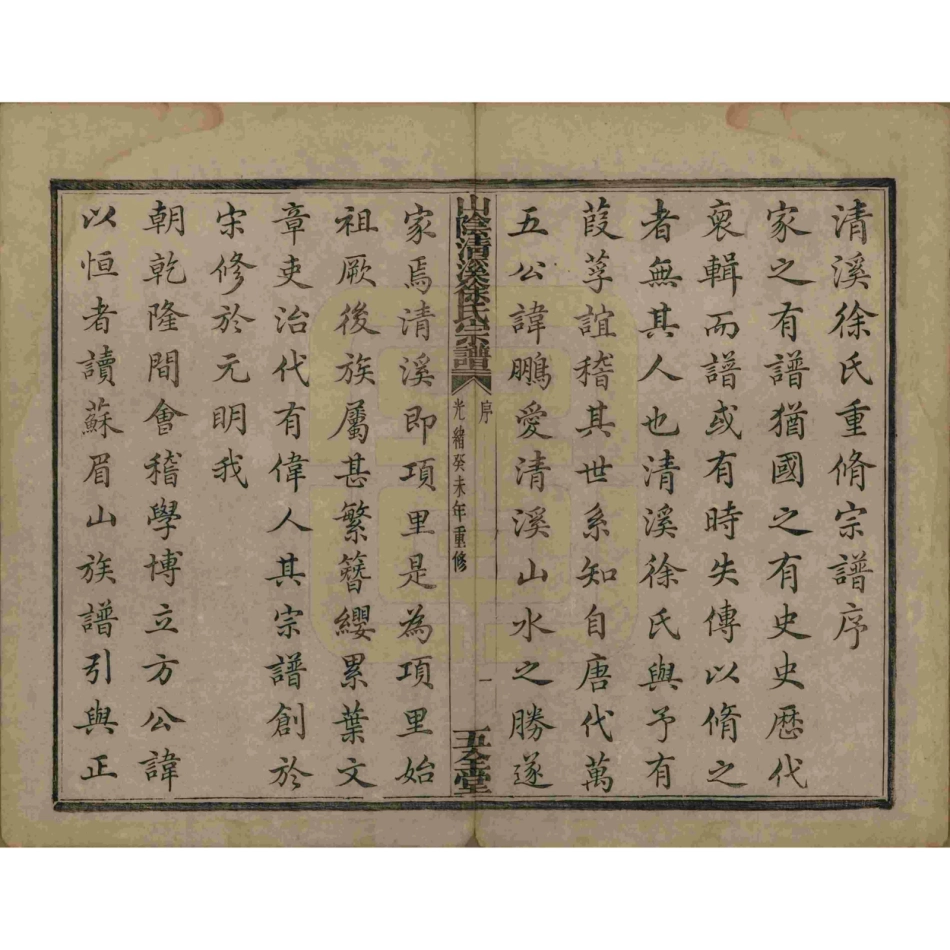 清溪徐氏重脩宗譜序
家之有譜猶國之有史史歷代
裒輯而譜或有時失傳以脩之
者無其人也清溪徐氏與予有
葭莩誼稽其世系知自唐代萬
五公諱鵬愛清溪山水之勝遂
山陰清溪徐氏宗譜
序
光緒癸未年重修
一
五全堂
家焉清溪即項里是為項里始
祖厥後族屬甚繁簪纓累葉文
章吏治代有偉人其宗譜創於
宋修於元明我
朝乾隆間會稽學博立方公諱
以恒者讀蘇眉山族譜引與正